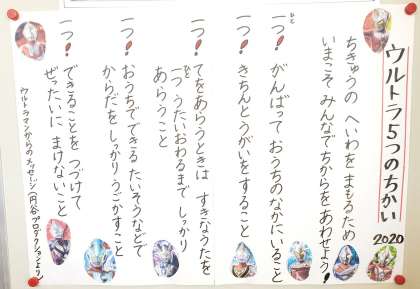 ウルトラ5つのちかい
2020
ちきゅうの へいわを まもるため
いまこそ みんなでちからをあわせよう!
一つ! がんばって おうちのなかにいること
ひと
一つ! きちんとうがいをすること
一つ! てをあらうときは すきなうたを
一つ うたいおわるまで しっかり
ひと
あらうこと
一つ! おうちでできる たいそうなどで
からだを しっかり うごかすこと
一つ! できることを つづけて
ぜったいに まけないこと
ウルトラマンからのメッセージ(円谷プロダクションより)